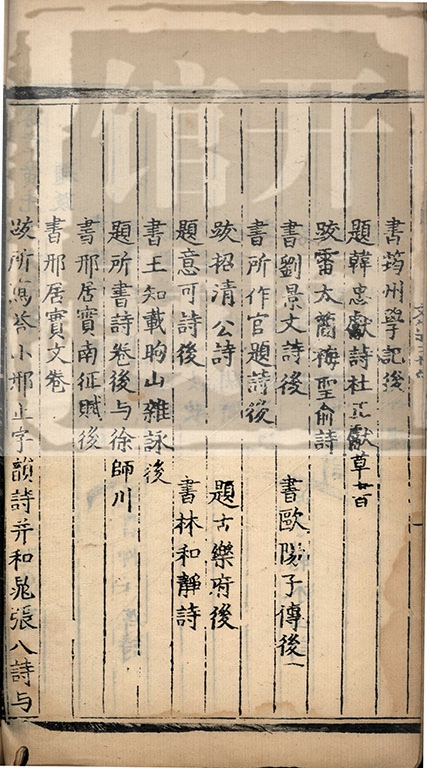 書筠州學記後
題韓忠獻詩杜正獻草書
跋雷太簡梅聖俞詩
書劉景文詩後 書歐陽子傳後
書所作官題詩後
跋招清公詩 題古樂府後
題意可詩後 書林和靜詩
書王知載朐山雜詠後
題所書詩卷後与徐師川
書邢居實南征賦後
書邢居實文卷
跋所寫答小邢止字韻詩并和晁張八詩与
开
馆